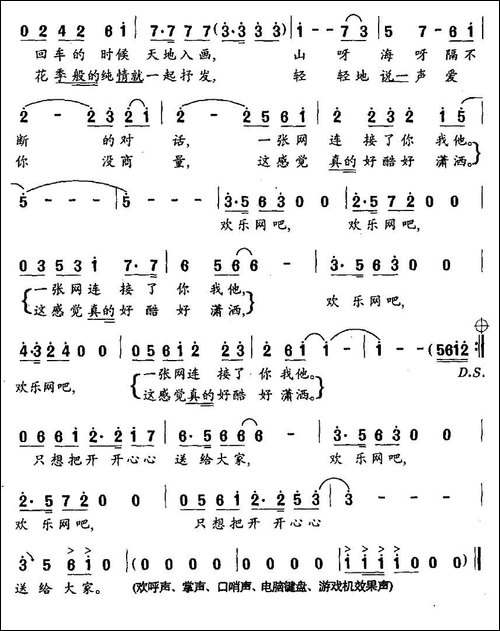 0 2 4 2 6 i | 7·7 7 7 (3·3 3 3) | i - - 7 3 | 5 7 - 6 i
回车的 时候 天地入画, 山 呀 海 呀 隔不
花季般的纯情就一起抒发, 轻 轻地 说一声 爱
2 - 2 3 2 1 | 2 - - - | 2 5 6 1 2 3 2 2 | 1 5 - -
断 的对 话, 一张网 连 接了你 我他。
你 没商 量, 这感觉 真的好酷好 潇洒。
5 - - - | 5 - - - | 3·5 6 3 0 0 | 2·5 7 2 0 0
欢乐网吧, 欢乐网吧,
0 3 5 3 1 7·7 | 6 5 6 6 - | 3·5 6 3 0 0
一张网连 接了 你 我他, 欢 乐网吧,
这感觉真的好酷 好 潇洒,
4·3 2 4 0 0 | 0 5 6 1 2 2 3 | 2 6 1 1 - | 1 - - (5 6 1 2 :‖
欢乐网吧, 一张网连 接了 你我他。 D.S.
这感觉真的好酷 好潇洒。
0 6 6 1 2·2 1 7 | 6·5 6 6 6 - | 3·5 6 3 0 0
只想把开 开心心 送给大家, 欢 乐网吧,
2·5 7 2 0 0 | 0 5 6 6 1 2·2 5 3 | 3 - - -
欢 乐网吧, 只想把开 开心心
3 5 6 1 0 | (0 0 0 0 | 0 0 0 0 | 1 1 1 1 0 0 0) ‖
送给大家。 (欢呼声、掌声、口哨声、电脑键盘、游戏机效果声)